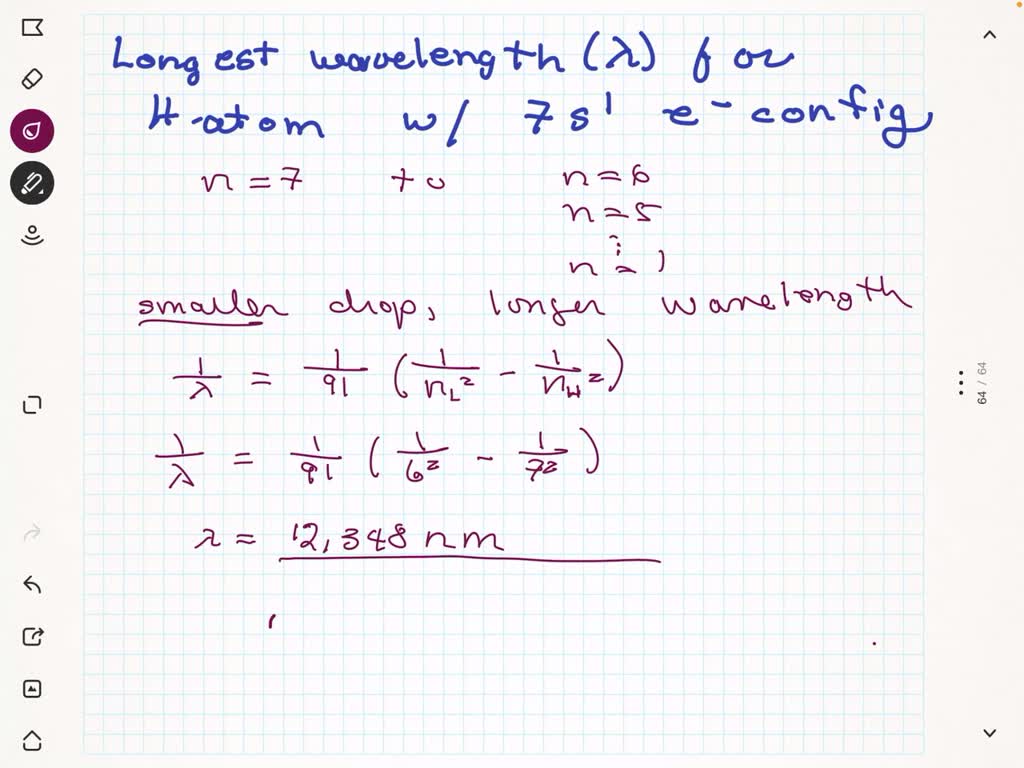 Longest wavelength (λ) for
H-atom w/ 7s¹ e⁻ config
n = 7 to n = 6
n = 5
⋮
n = 1
smaller drop, longer wavelength
1/λ = 1/91 (1/n_L² - 1/n_H²)
1/λ = 1/91 (1/6² - 1/7²)
λ = 12,348 nm
64 / 64